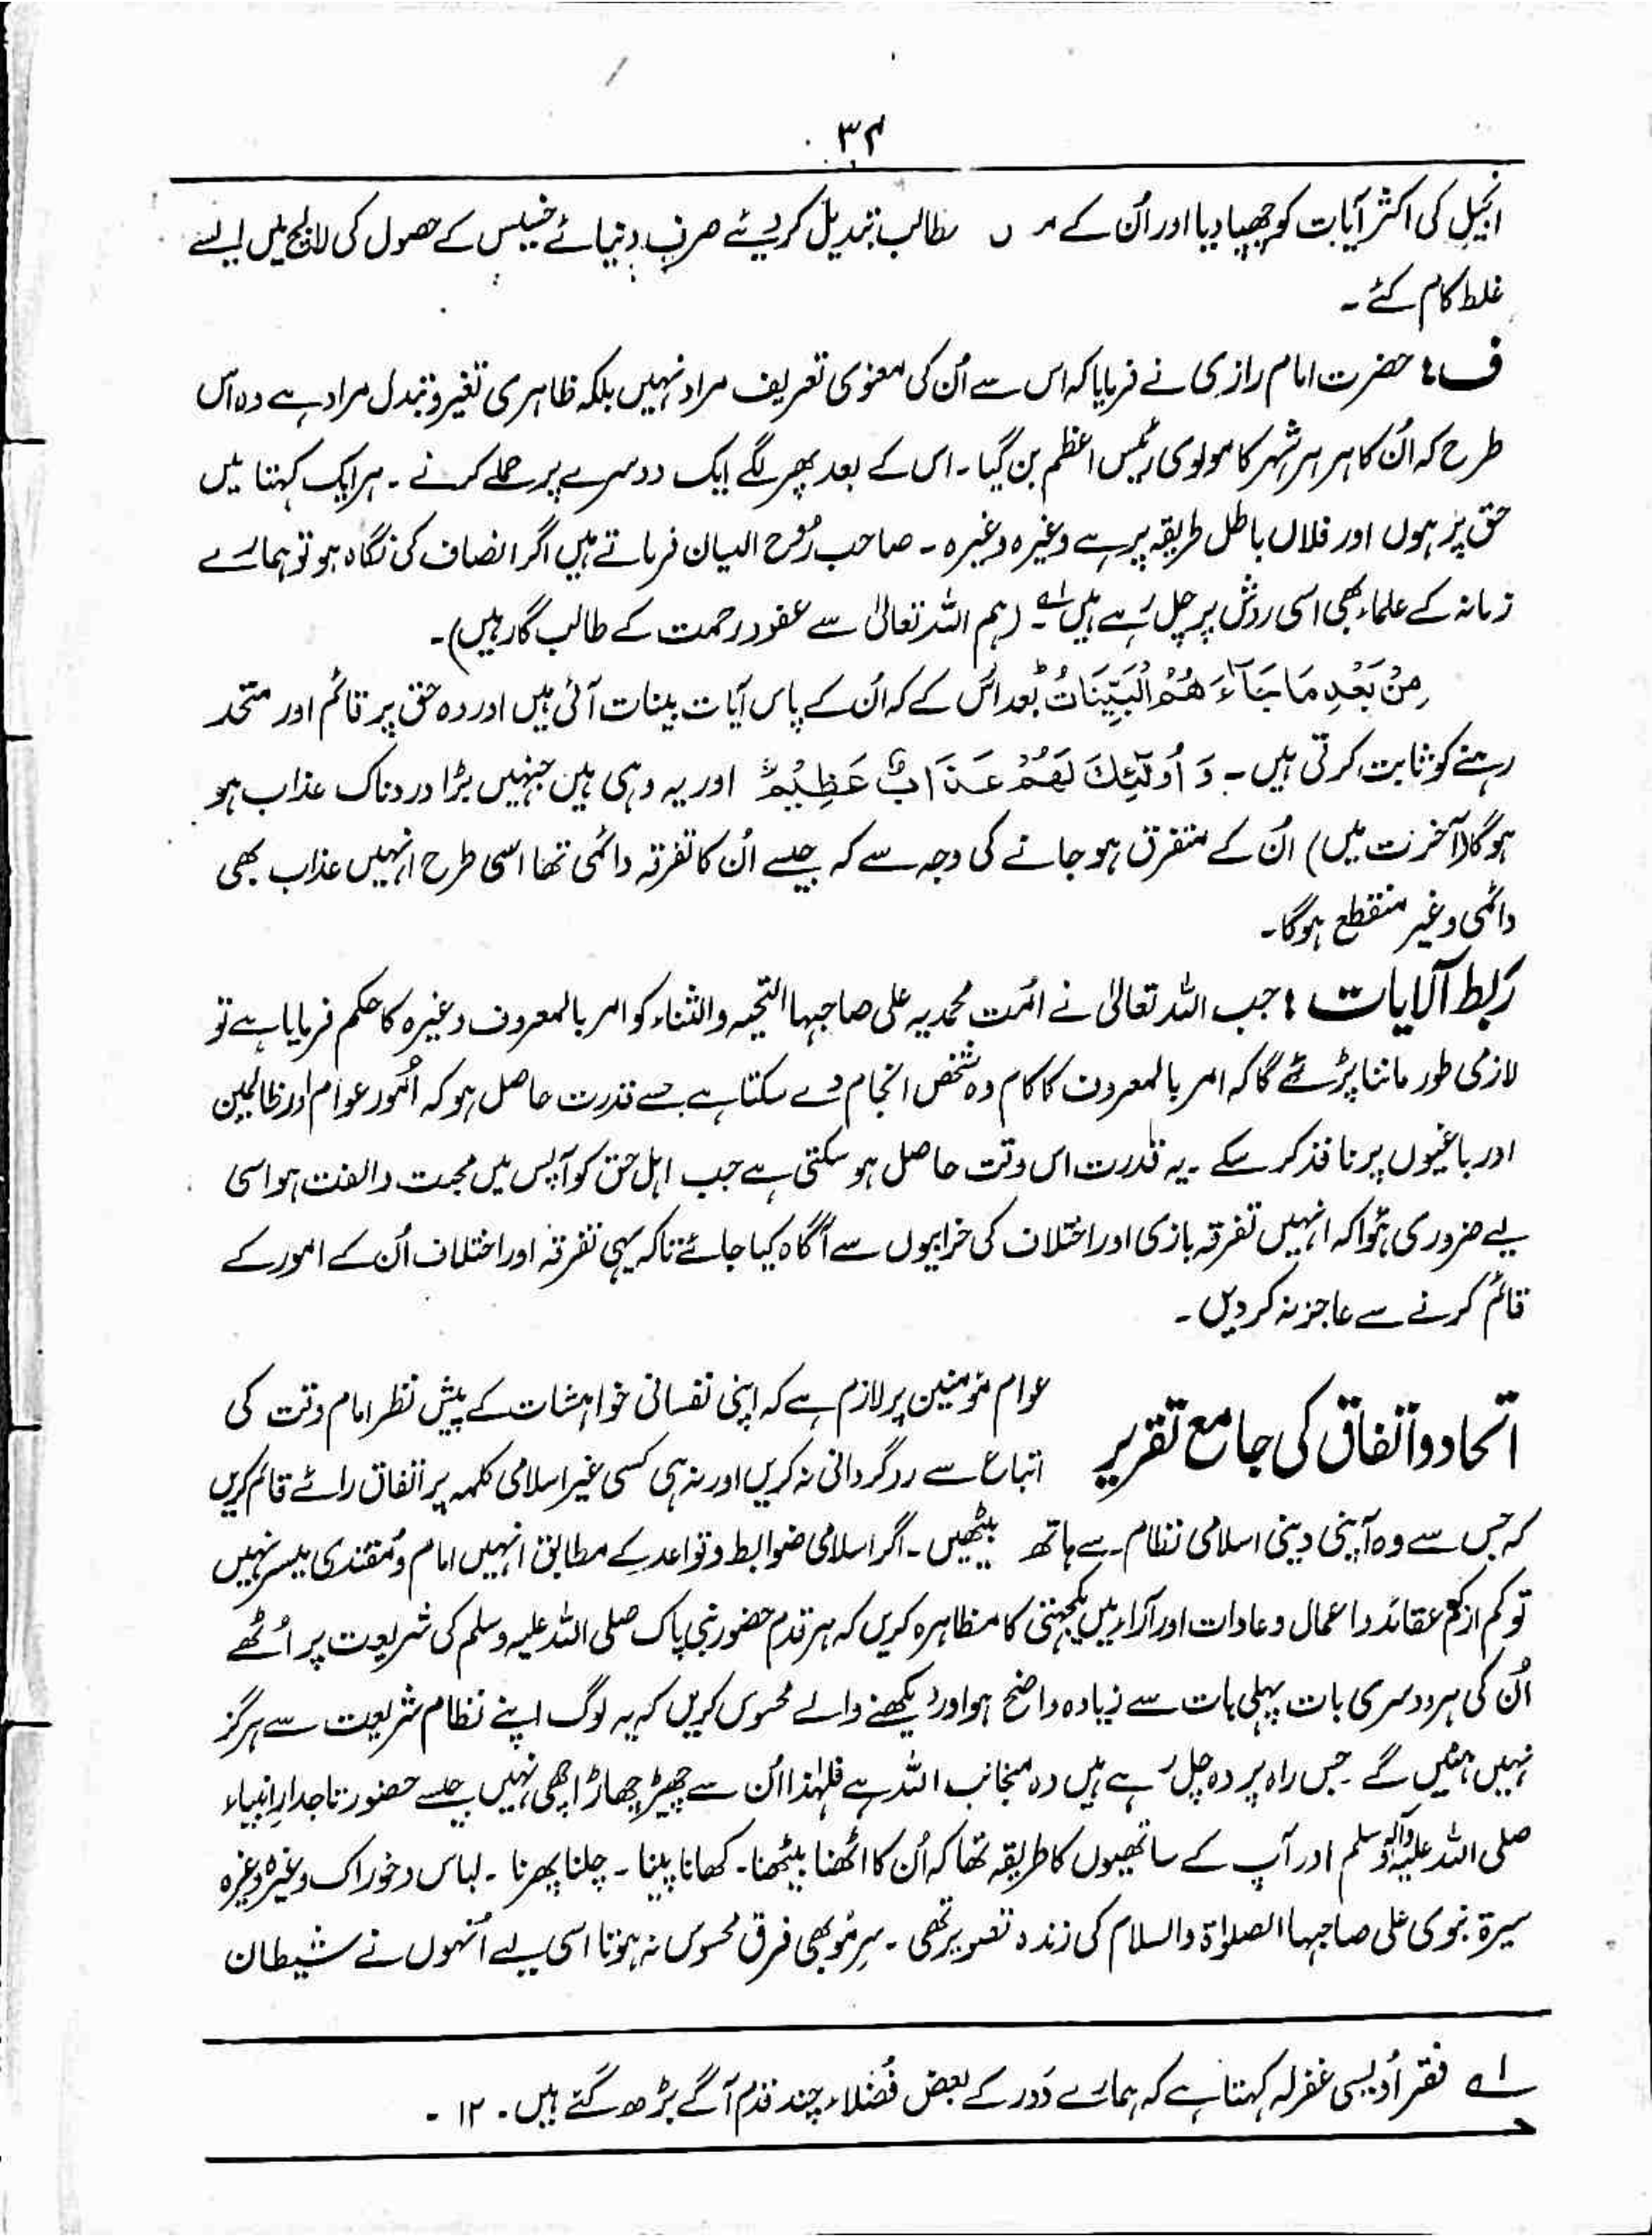 ۳۴
انجیل کی اکثر آیات کو چھپا دیا اور اُن کے مطالب تبدیل کر دیئے صرف دنیائے خسیس کے حصول کی لالچ میں ایسے
غلط کام کئے ۔
ف : حضرت امام رازی نے فرمایا کہ اس سے اُن کی معنوی تعریف مراد نہیں بلکہ ظاہری تغیر و تبدل مراد ہے وہ اس
طرح کہ اُن کا ہر ہر شہر کا مولوی رئیس اعظم بن گیا ۔ اس کے بعد پھر لگے ایک دوسرے پر حملے کرنے ۔ ہر ایک کہتا میں
حق پر ہوں اور فلاں باطل طریقہ پر ہے وغیرہ وغیرہ ۔ صاحب رُوح البیان فرماتے ہیں اگر انصاف کی نگاہ ہو تو ہمارے
زمانہ کے علماء بھی اسی روش پر چل رہے ہیں ۱ے ۔ (ہم اللہ تعالیٰ سے عفو و رحمت کے طالب گار ہیں) ۔
مِنْ بَعْدِ مَا جَآءَ هُمُ الْبَيِّنَاتُ بعد اس کے کہ اُن کے پاس آیات بینات آئی ہیں اور وہ حق پر قائم اور متحد
رہنے کو ثابت کرتی ہیں ۔ وَ اُولٰٓئِكَ لَهُمْ عَذَابٌ عَظِيْمٌ اور یہ وہی ہیں جنہیں بڑا دردناک عذاب ہو
ہوگا (آخرت میں) اُن کے متفرق ہو جانے کی وجہ سے کہ جیسے اُن کا تفرقہ دائمی تھا اسی طرح انہیں عذاب بھی
دائمی و غیر منقطع ہوگا ۔
رَبط الآیات : جب اللہ تعالیٰ نے اُمت محمدیہ علی صاحبہا التحیہ والثناء کو امر بالمعروف وغیرہ کا حکم فرمایا ہے تو
لازمی طور ماننا پڑے گا کہ امر بالمعروف کا کام وہ شخص انجام دے سکتا ہے جسے قدرت حاصل ہو کہ اُمور عوام اور ظالمین
اور باغیوں پر نافذ کر سکے ۔ یہ قدرت اس وقت حاصل ہو سکتی ہے جب اہل حق کو آپس میں محبت و الفت ہو اسی
لیے ضروری ہُوا کہ انہیں تفرقہ بازی اور اختلاف کی خرابیوں سے آگاہ کیا جائے تاکہ یہی تفرقہ اور اختلاف اُن کے امور کے
قائم کرنے سے عاجز نہ کر دیں ۔
اتحاد و اتفاق کی جامع تقریر
عوام مؤمنین پر لازم ہے کہ اپنی نفسانی خواہشات کے پیش نظر امام وقت کی
اتباع سے روگردانی نہ کریں اور نہ ہی کسی غیر اسلامی کلمہ پر اتفاق رائے قائم کریں
کہ جس سے وہ اپنی دینی اسلامی نظام سے ہاتھ بیٹھیں ۔ اگر اسلامی ضوابط و قواعد کے مطابق انہیں امام و مُقتدی میسر نہیں
تو کم از کم عقائد و اعمال و عادات اور آراء میں یکجہتی کا مظاہرہ کریں کہ ہر قدم حضور نبی پاک صلی اللہ علیہ وسلم کی شریعت پر اُٹھے
اُن کی ہر دوسری بات پہلی بات سے زیادہ واضح ہو اور دیکھنے والے محسوس کریں کہ یہ لوگ اپنے نظام شریعت سے ہرگز
نہیں ہٹیں گے ۔ جس راہ پر وہ چل رہے ہیں وہ منجانب اللہ ہے فلہٰذا اُن سے چھیڑ چھاڑ اچھی نہیں جیسے حضور تاجدارِ انبیاء
صلی اللہ علیہ وآلہ وسلم اور آپ کے ساتھیوں کا طریقہ تھا کہ اُن کا اٹھنا بیٹھنا ۔ کھانا پینا ۔ چلنا پھرنا ۔ لباس و خوراک وغیرہ وغیرہ
سیرۃ نبوی علی صاحبہا الصلوٰۃ والسلام کی زندہ تصویر تھی ۔ سرِمُو بھی فرق محسوس نہ ہوتا اسی لیے اُنہوں نے شیطان
۱ے فقر اُویسی غفرلہ کہتا ہے کہ ہمارے دَور کے بعض فُضلاء چند قدم آگے بڑھ گئے ہیں ۔ ۱۲ ۔